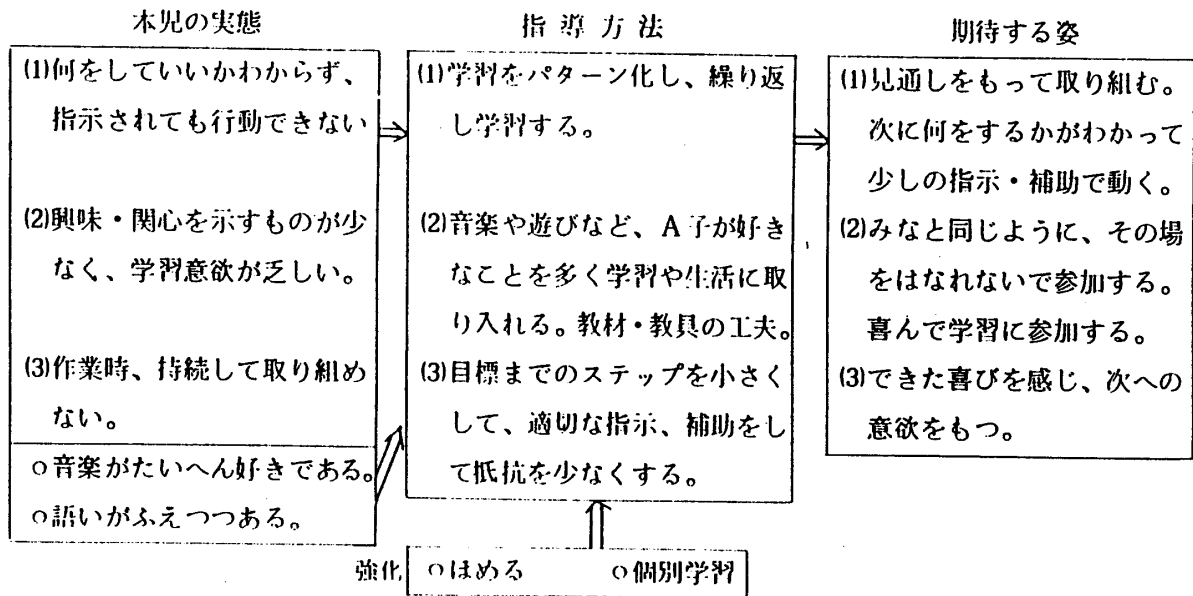 本児の実態
(1)何をしていいかわからず、
指示されても行動できない
(2)興味・関心を示すものが少
なく、学習意欲が乏しい。
(3)作業時、持続して取り組め
ない。
○音楽がたいへん好きである。
○語いがふえつつある。
指導方法
(1)学習をパターン化し、繰り返
し学習する。
(2)音楽や遊びなど、A子が好き
なことを多く学習や生活に取
り入れる。教材・教具の工夫。
(3)目標までのステップを小さく
して、適切な指示、補助をし
て抵抗を少なくする。
期待する姿
(1)見通しをもって取り組む。
次に何をするかがわかって
少しの指示・補助で動く。
(2)みなと同じように、その場
をはなれないで参加する。
喜んで学習に参加する。
(3)できた喜びを感じ、次への
意欲をもつ。
強化 ○ほめる ○個別学習